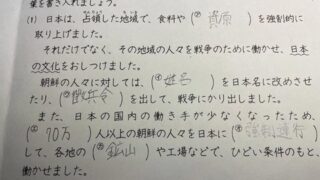 葉を書き入れましょう。
(1) 日本は、占領した地域で、食料や(① 資原 )を強制的に
取り上げました。
それだけでなく、その地域の人々を戦争のために働かせ、日本
の文化をおしつけました。
朝鮮の人々に対しては、(④ 姓名 )を日本名に改めさせ
たり、(⑤ 徴兵令 )を出して、戦争にかり出しました。
また、日本の国内の働き手が少なくなったため、
(② 70万 )人以上の朝鮮の人々を日本に(③ 強制連行 )
して、各地の(⑤ 鉱山 )や工場などで、ひどい条件のもと、
働かせました。